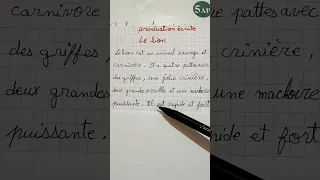 5AP
production écrite
Le lion
Le lion est un animal sauvage et
carnivore. Il a quatre pattes avec
des griffes, une jolie crinière,
deux grandes oreilles et une machoire
puissante. Il est rapide et fort
carnivore
des griffes,
deux grandes
puissante.
pattes avec
crinière,
machoire
pide et fort